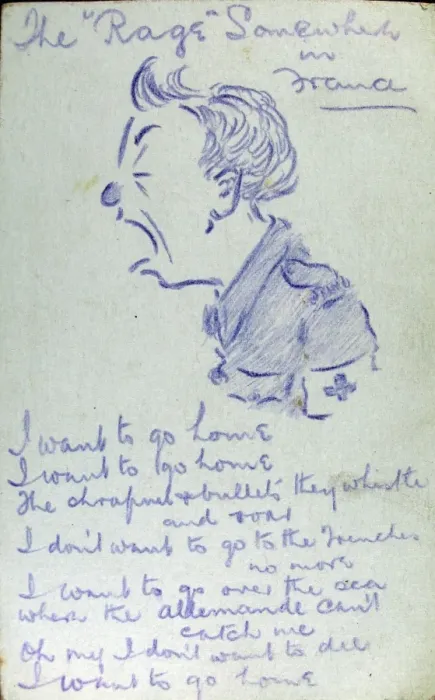 The "Rage" Somewhere
in
France
I want to go home
I want to go home
The shrapnel & bullets they whistle
and roar
I don't want to go to the Trenches
no more
I want to go over the sea
where the allemande can't
catch me
Oh my I don't want to die
I want to go home